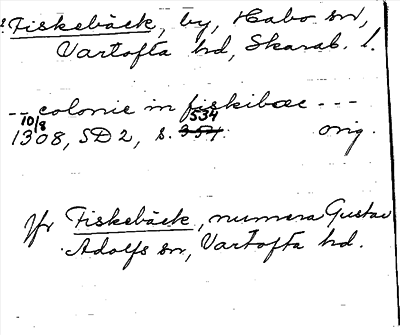 Fiskebäck, by, Habo sn,
Vartofta hd, Skarab. l.
-- colonie in fiskibæc ---
10/8 534
1308, SD 2, s. 351. orig.
Jfr Fiskebäck, numera Gustav
Adolfs sn, Vartofta hd.